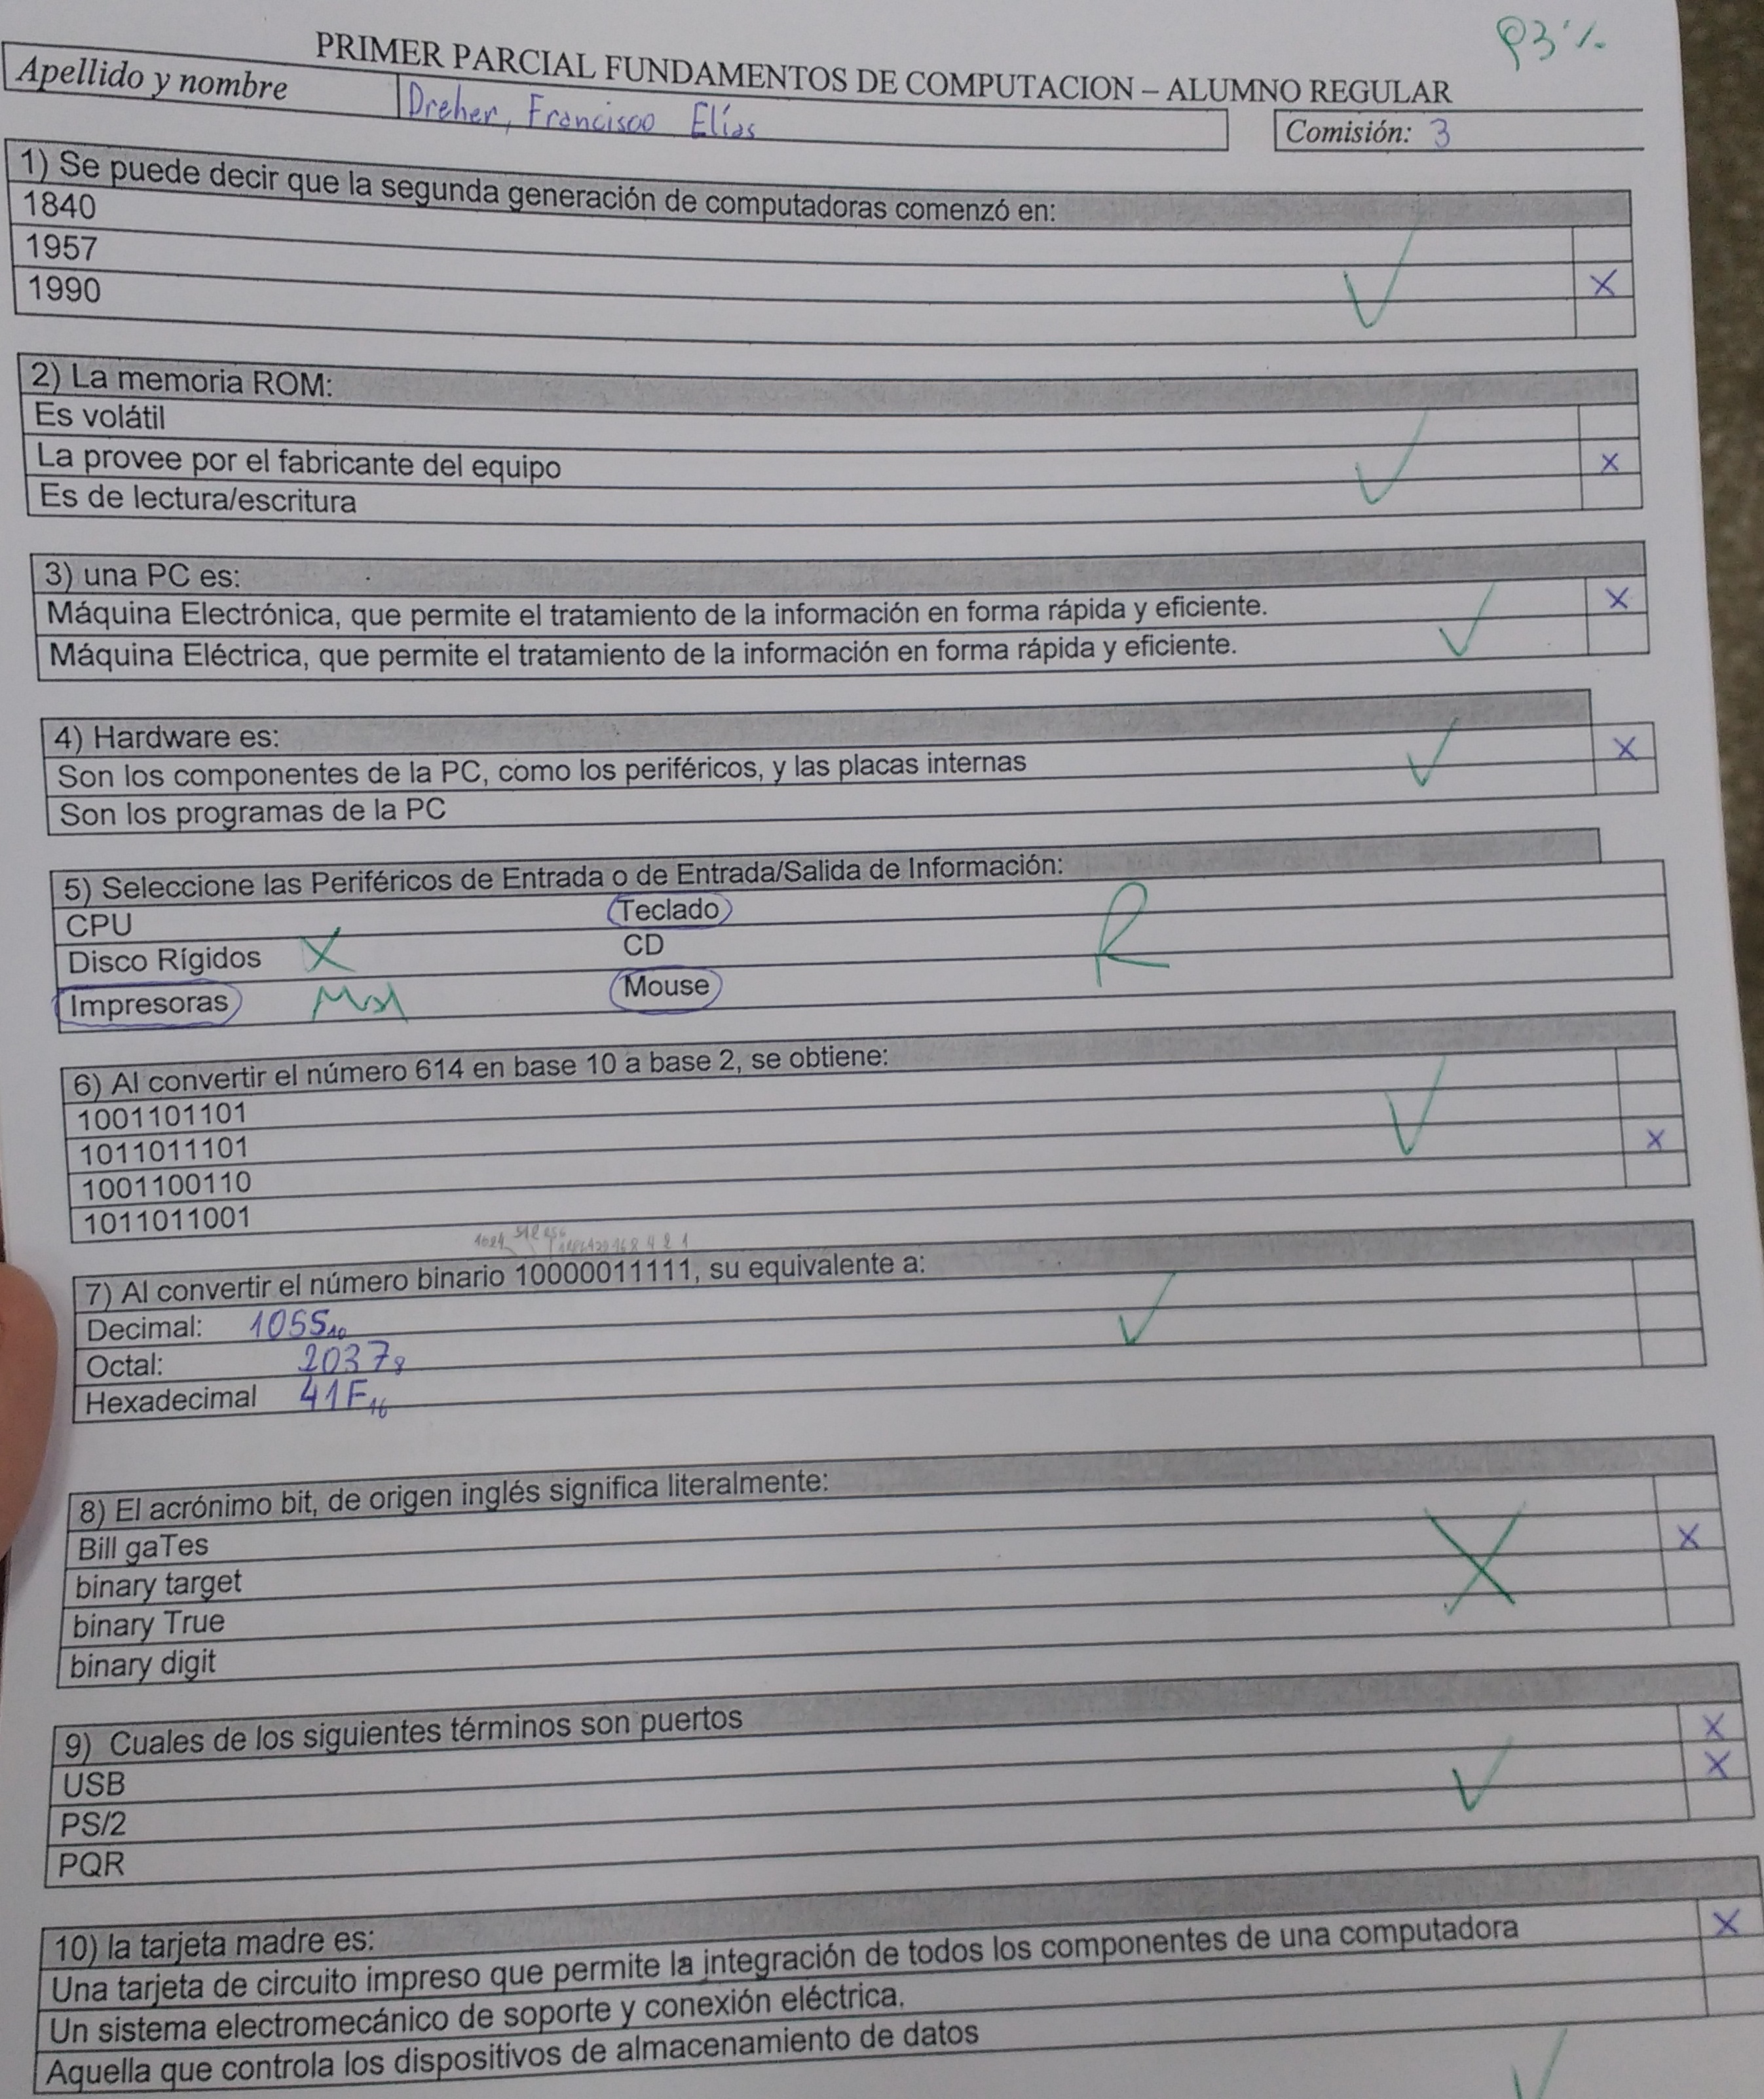 93%
PRIMER PARCIAL FUNDAMENTOS DE COMPUTACION – ALUMNO REGULAR
Apellido y nombre Dreher, Francisco Elías Comisión: 3
1) Se puede decir que la segunda generación de computadoras comenzó en:
1840
1957 X
1990
2) La memoria ROM:
Es volátil
La provee por el fabricante del equipo X
Es de lectura/escritura
3) una PC es:
Máquina Electrónica, que permite el tratamiento de la información en forma rápida y eficiente. X
Máquina Eléctrica, que permite el tratamiento de la información en forma rápida y eficiente.
4) Hardware es:
Son los componentes de la PC, como los periféricos, y las placas internas X
Son los programas de la PC
5) Seleccione las Periféricos de Entrada o de Entrada/Salida de Información:
CPU Teclado R
Disco Rígidos X CD
Impresoras Mouse
6) Al convertir el número 614 en base 10 a base 2, se obtiene:
1001101101
1011011101
1001100110 X
1011011001
7) Al convertir el número binario 10000011111, su equivalente a:
Decimal: 1055₁₀
Octal: 2037₈
Hexadecimal 41F₁₆
8) El acrónimo bit, de origen inglés significa literalmente:
Bill gaTes
binary target X
binary True
binary digit
9) Cuales de los siguientes términos son puertos
USB X
PS/2 X
PQR
10) la tarjeta madre es:
Una tarjeta de circuito impreso que permite la integración de todos los componentes de una computadora X
Un sistema electromecánico de soporte y conexión eléctrica.
Aquella que controla los dispositivos de almacenamiento de datos